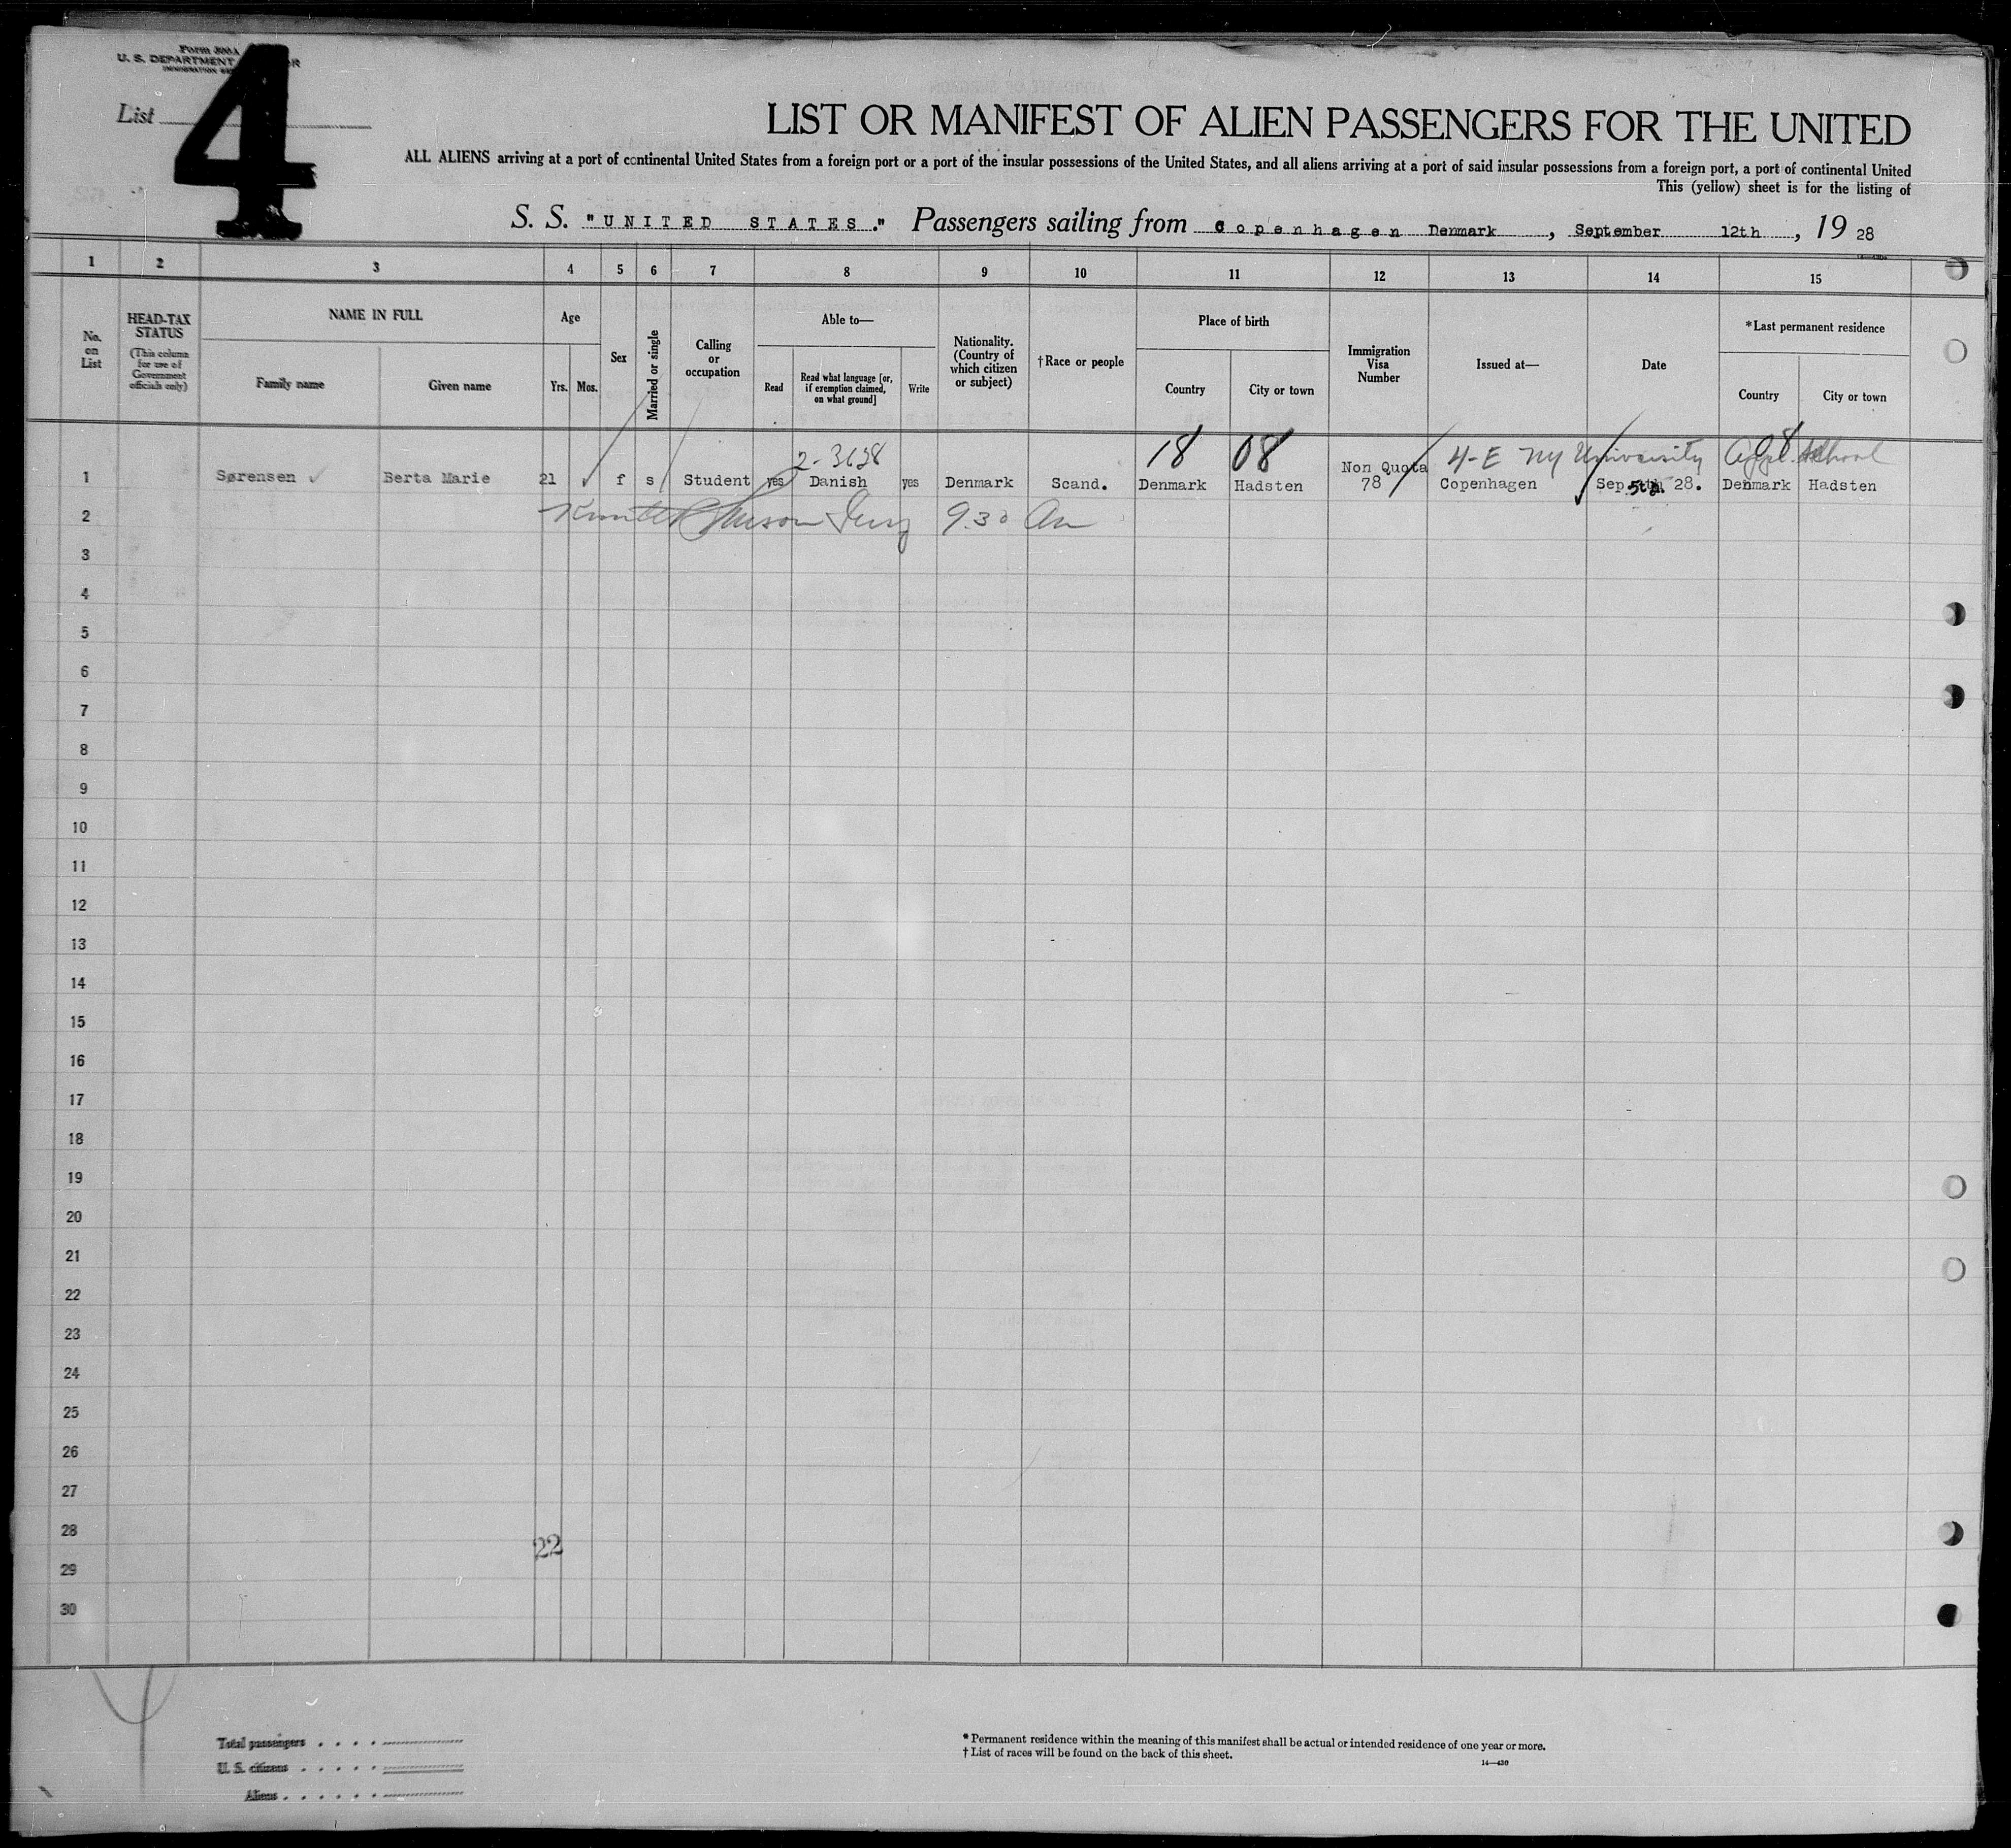 Form 500A
U. S. DEPARTMENT
List
4
LIST OR MANIFEST OF ALIEN PASSENGERS FOR THE UNITED
ALL ALIENS arriving at a port of continental United States from a foreign port or a port of the insular possessions of the United States, and all aliens arriving at a port of said insular possessions from a foreign port, a port of continental United
This (yellow) sheet is for the listing of
S. S. "UNITED STATES." Passengers sailing from Copenhagen Denmark, September 12th, 19 28
1 2 3 4 5 6 7 8 9 10 11 12 13 14 15
No. on List
HEAD-TAX STATUS
(This column for use of Government officials only)
NAME IN FULL
Family name
Given name
Age
Yrs. Mos.
Sex
Married or single
Calling or occupation
Able to—
Read
Read what language [or, if exemption claimed, on what ground]
Write
Nationality. (Country of which citizen or subject)
†Race or people
Place of birth
Country
City or town
Immigration Visa Number
Issued at—
Date
*Last permanent residence
Country
City or town
2-3628 18 08 4-E NY University 08 School
1 Sørensen Berta Marie 21 f s Student yes Danish yes Denmark Scand. Denmark Hadsten Non Quota 78 Copenhagen Sep 5th 28. Denmark Hadsten
2 9.30 Am
3
4
5
6
7
8
9
10
11
12
13
14
15
16
17
18
19
20
21
22
23
24
25
26
27
28
22
29
30
Total passengers
U. S. citizens
Aliens
* Permanent residence within the meaning of this manifest shall be actual or intended residence of one year or more.
† List of races will be found on the back of this sheet.
14—430